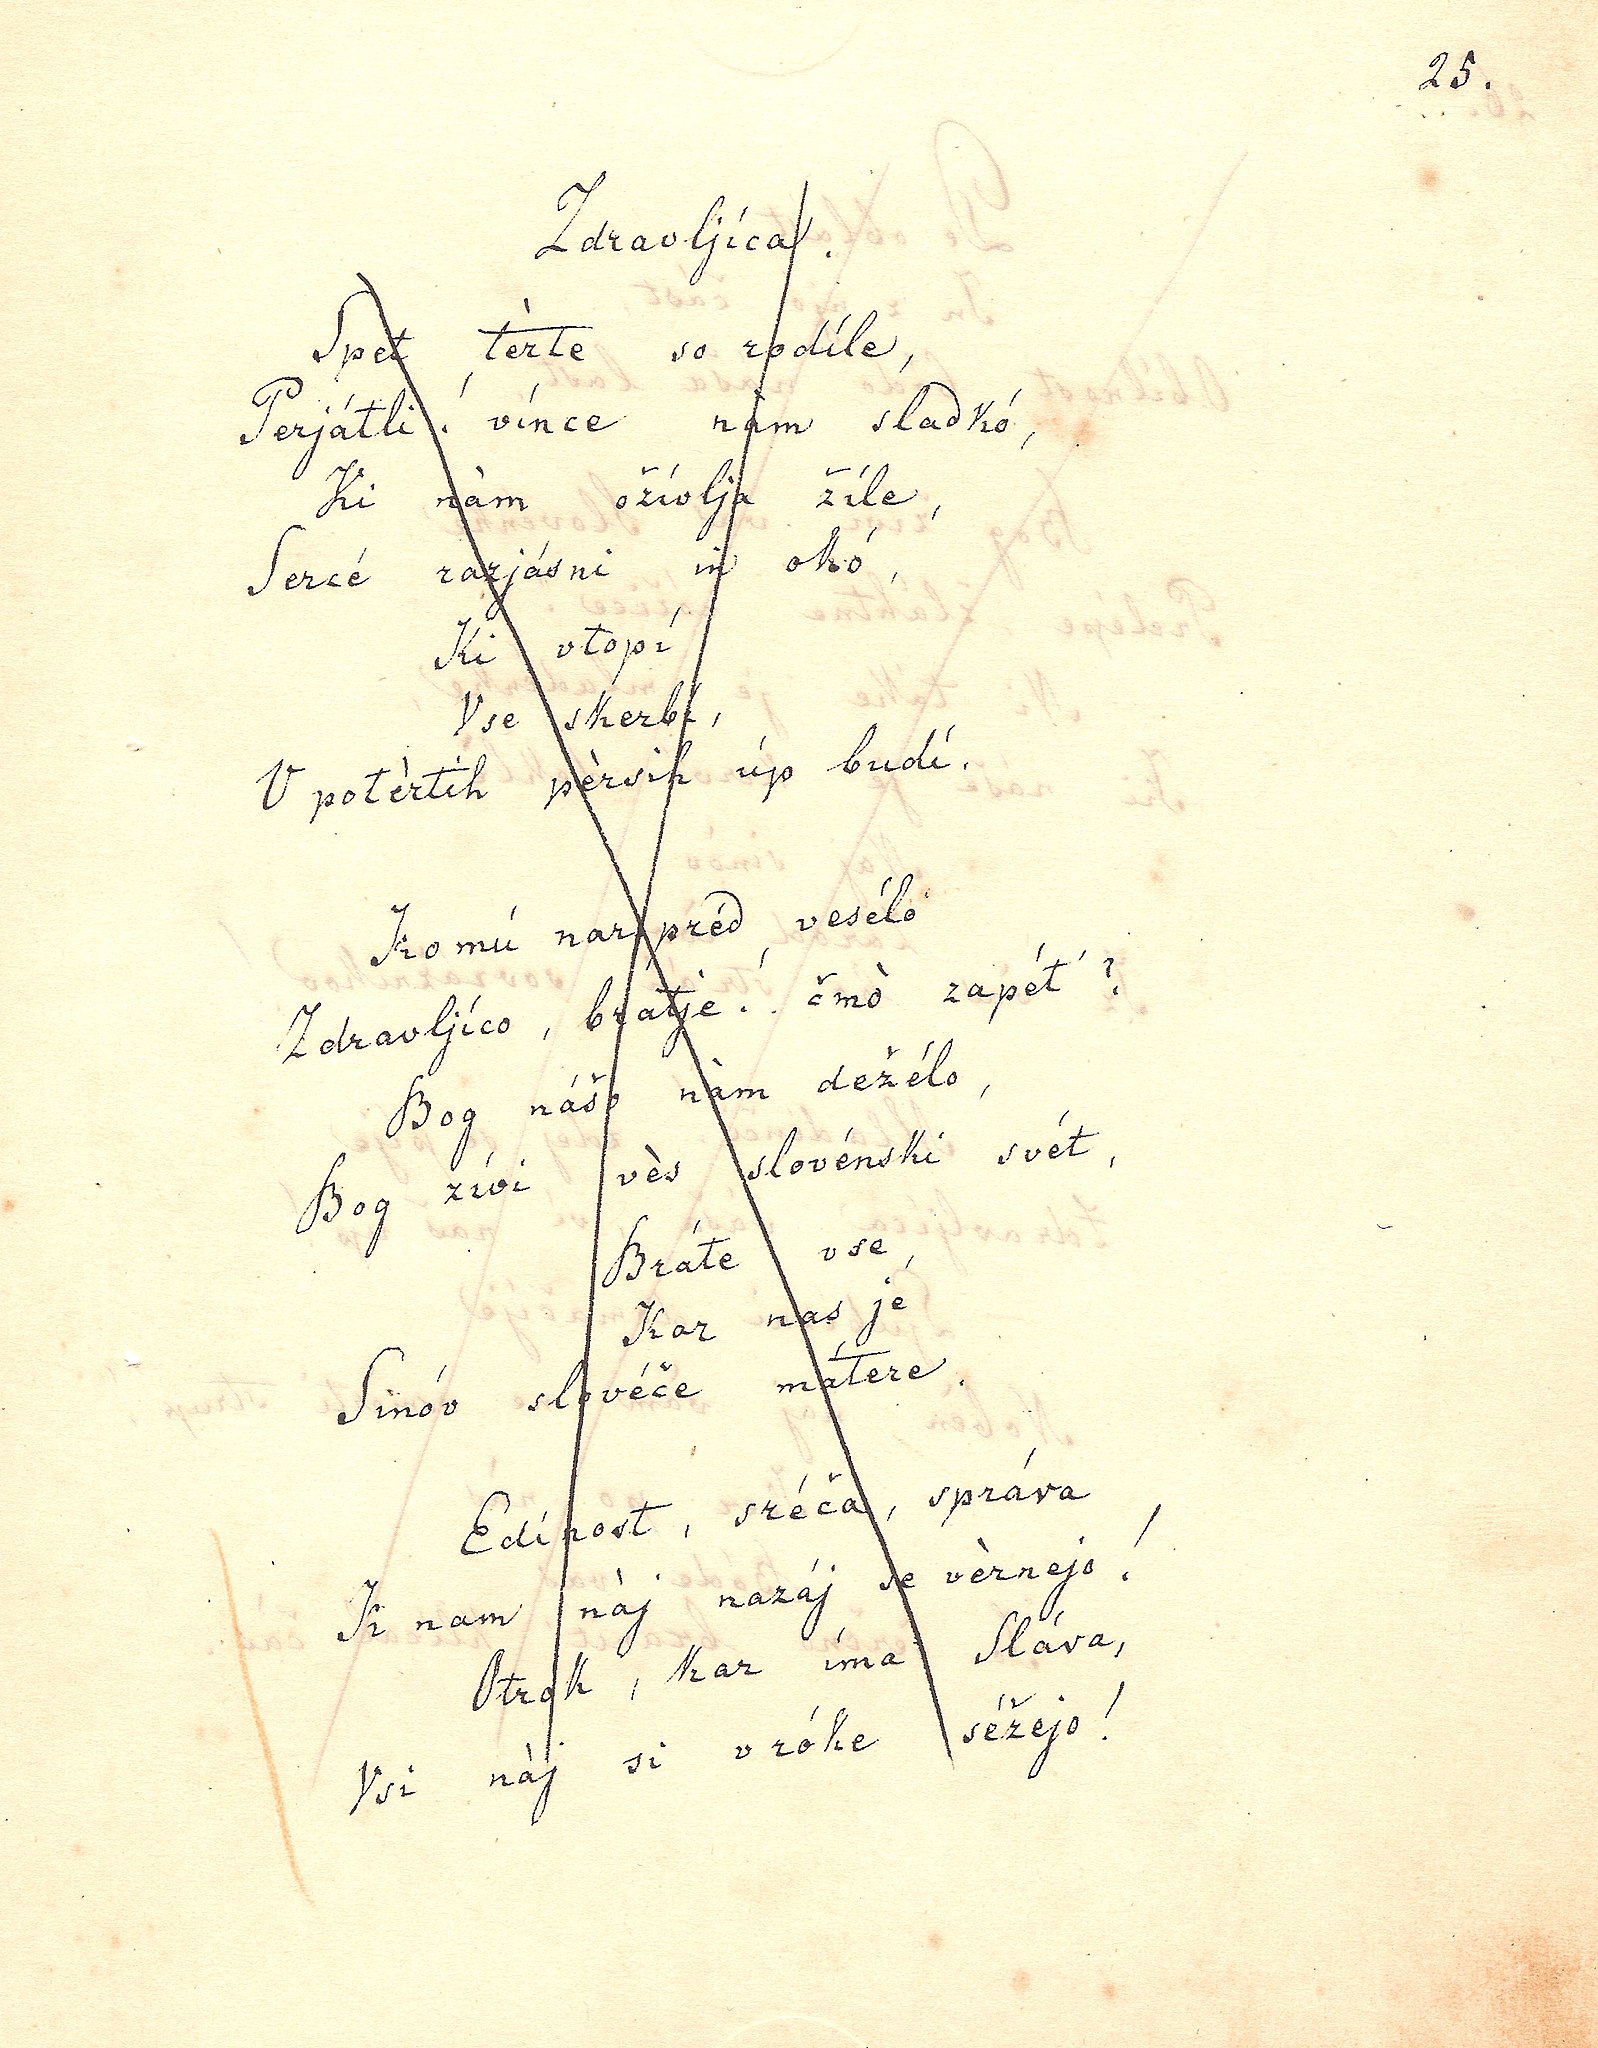 25.
Zdravljíca.
Spet tèrte so rodíle,
Perjátli! vínce nàm sladkó,
Ki nàm ožívlja žíle,
Sercé razjásni in okó,
Ki vtopí
Vse skerbí,
V potèrtih pèrsih úp budí.
Komú narpréd veselo
Zdravljíco, bratje! čmò zapét'?
Bog nášo nàm dežélo,
Bog živi vès slovénski svét,
Bráte vse,
Kar nas je
Sinóv slovéče mátere.
Edínost, sréča, správa
K nam nàj nazáj se vèrnejo!
Otrok, kar íma Sláva,
Vsi nàj si vróke séžejo!